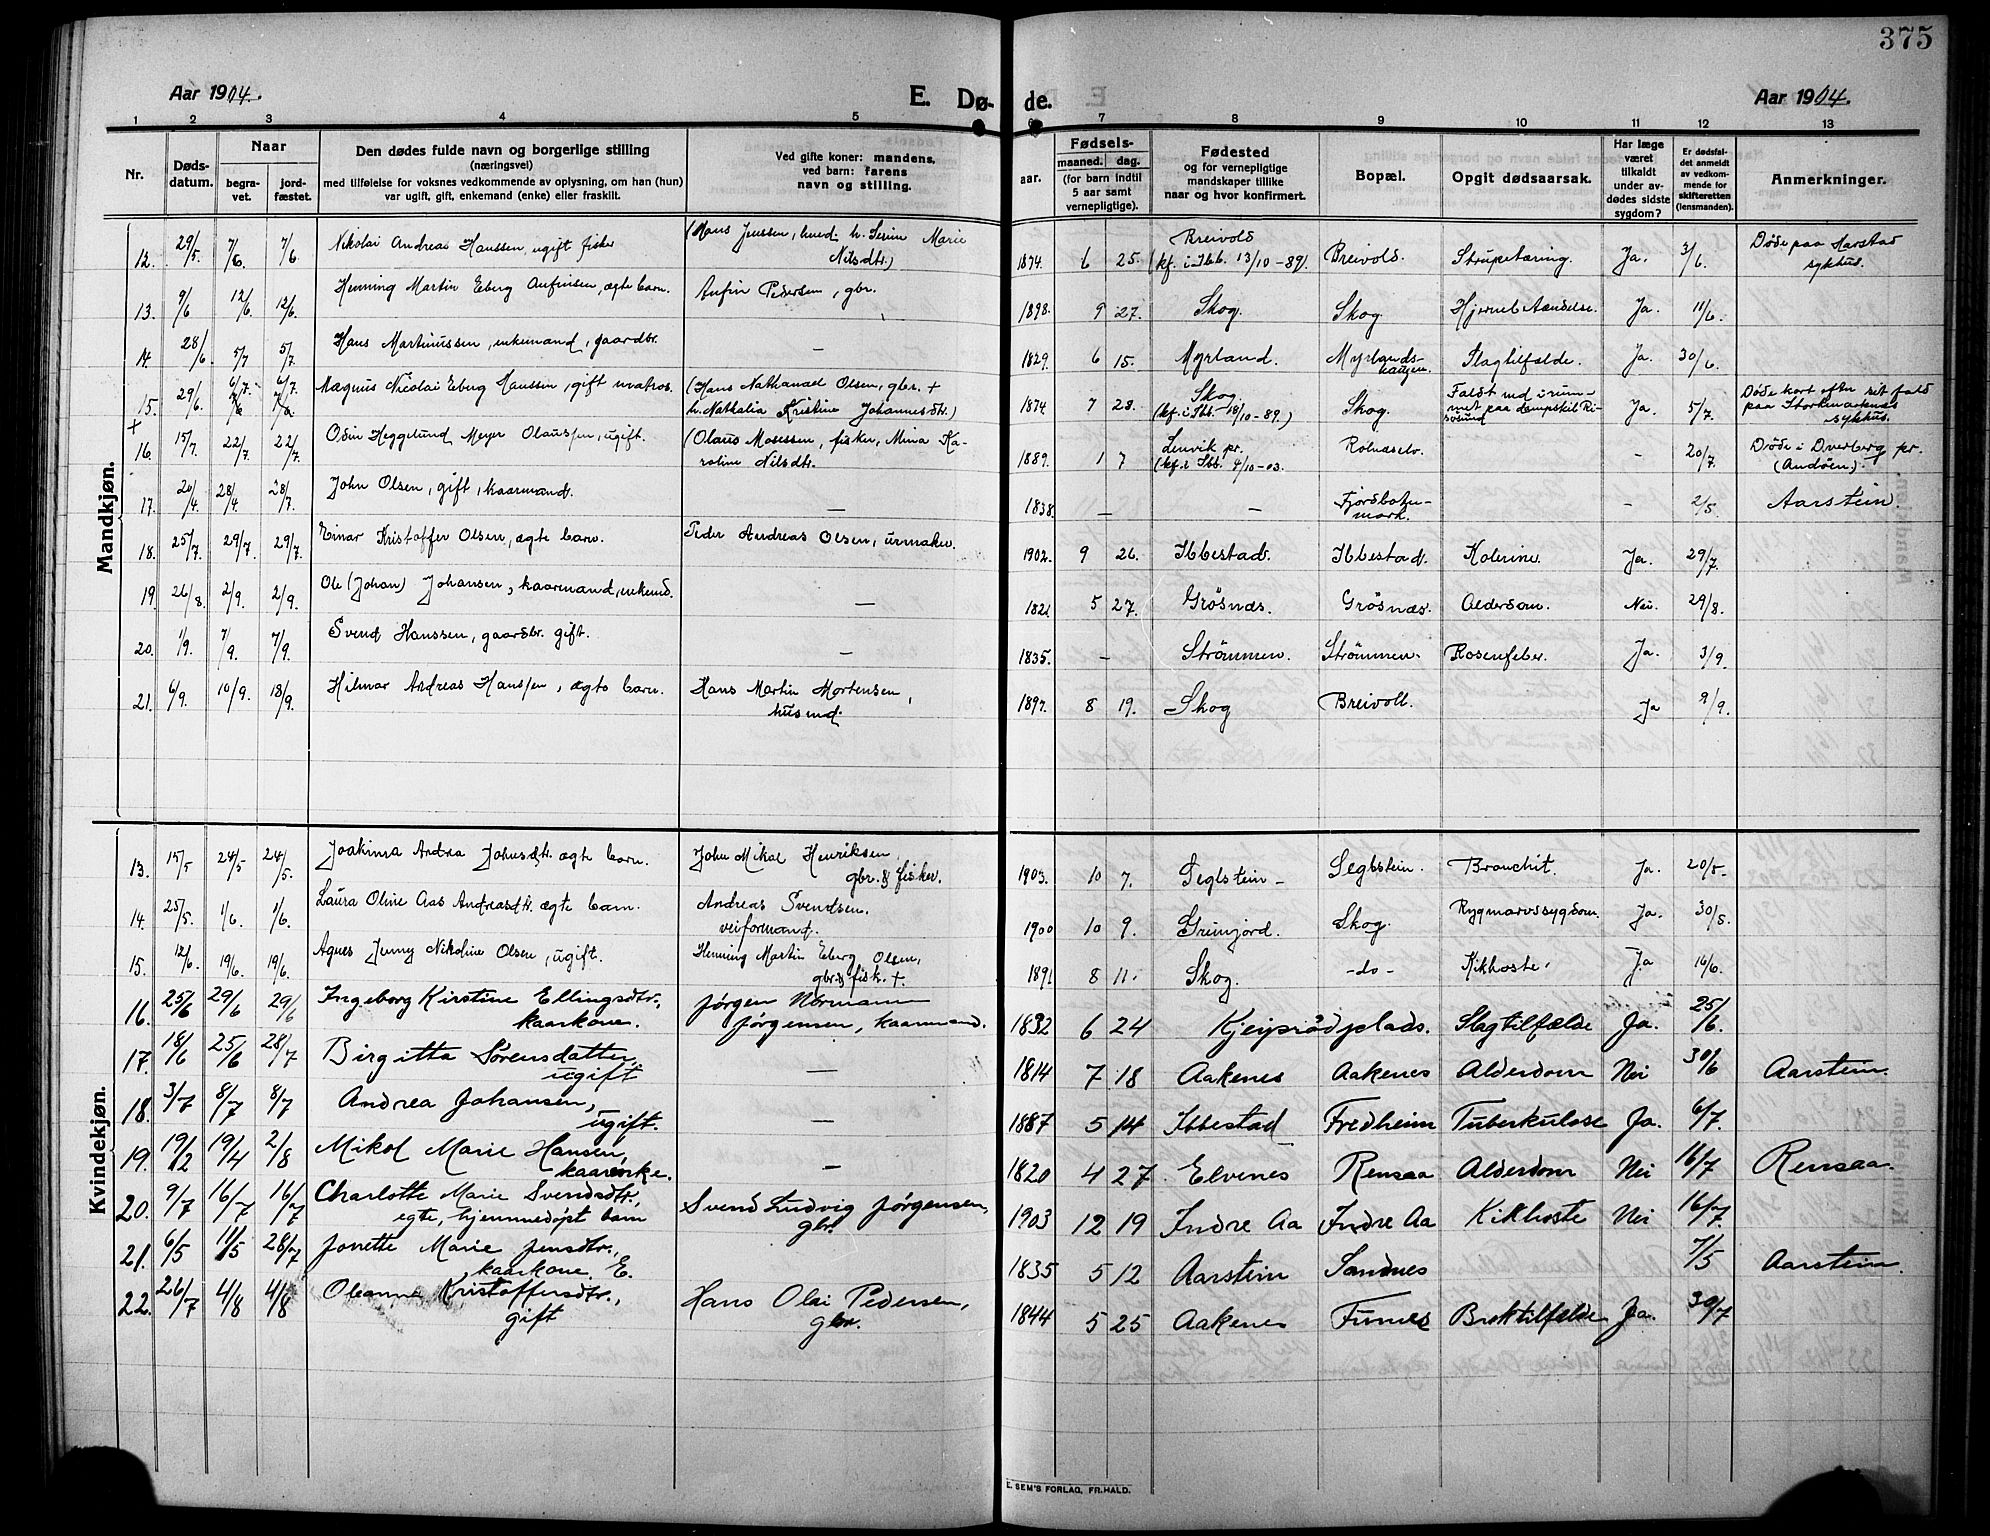 375
Aar 1904.
E. Dø-
de.
Aar 1904.
1 2 3 4 5 6 7 8 9 10 11 12 13
Nr.
Døds-
datum.
Naar
begra-
vet.
jord-
fæstet.
Den dødes fulde navn og borgerlige stilling
(næringsvei)
med tilføielse for voksnes vedkommende av oplysning, om han (hun)
var ugift, gift, enkemand (enke) eller fraskilt.
Ved gifte koner: mandens,
ved barn: farens
navn og stilling.
aar.
Fødsels-
maaned. dag.
(for barn indtil
5 aar samt
vernepligtige).
Fødested
og for vernepligtige
mandskaper tillike
naar og hvor konfirmert.
Bopæl.
Opgit dødsaarsak.
Har læge
været
tilkaldt
under av-
dødes sidste
sygdom?
Er dødsfal-
det anmeldt
av vedkom-
mende for
skifteretten
(lensmanden).
Anmerkninger.
Mandkjøn.
12. 29/5 7/6 7/6 Nikolai Andreas Hanssen, ugift fisker (Hans Jenssen, hued. h. Serine Marie
Nilsdtr.)
1874. 6 25. Breivold
(kf. i Ibb. 13/10-89). Breivold. Strupetæring. Ja. 3/6. Døde paa Harstad
sykhus.
13. 9/6 12/6 12/6. Henning Martin Eberg Anfinsen, ægte barn. Anfin Pedersen, gbr.
1898. 9 27. Skog. Skog Hjernebetændelse. Ja. 11/6.
14. 28/6 5/7 5/7. Hans Martinussen, enkemand, gaardbr. —
1829. 6 15. Myrland. Myrlands-
haugen. Slagtilfælde. Ja. 30/6.
15. 29/6. 6/7. 6/7. Magnus Nicolai Eberg Hanssen, gift matros. (Hans Nathanael Olsen, gbr. +
h. Nathalia Kristine Johannesdtr.)
1874. 7 28. Skog.
(kf. i Ibb. 18/10-89.) Skog. Faldt ned i rum-
met paa dampskib Ri-
søsund Ja. 5/7. Døde kort efter sit fald
paa Stokmarknes
sykhus.
+
16. 15/7. 22/7. 22/7. Odin Heggelund Meyer Olaussen, ugift. (Olaus Mosessen, fisker, Mina Ka-
roline Nilsdtr.
1889. 1 7 Lenvik pr.
(kf. i Ibb. 4/10-03. - 20/7. Døde i Dverberg pr.
(Andøen).
17. 20/4. 28/4. 28/7. John Olsen, gift, kaarmand. —
1838. — — Fjordbotn-
mark. - 2/5. Aarstein.
18. 25/7. 29/7. 29/7. Einar Kristoffer Olsen, ægte barn. Peder Andreas Olsen, urmaker.
1902. 9 26. Ibbestad. Ibbestad. Kolerine. Ja. 29/7.
19. 26/8. 2/9. 2/9. Ole (Johan) Johansen, kaarmand, enkemd. —
1821. 5 27. Grøsnæs. Grøsnæs. Alderdom. Nei. 29/8.
20. 1/9. 7/9. 7/9. Svend Hanssen, gaardbr. gift. —
1835. - Strømmen. Strømmen. Rosenfeber. Ja. 3/9.
21. 6/9. 10/9. 18/9. Hilmar Andreas Hanssen, ægte barn. Hans Martin Mortensen,
husmd.
1897. 8 19. Skog Breivoll. Ja 9/9.
Kvindekjøn.
13. 15/5 24/5 24/5. Joakima Andrea Johnsdtr. ægte barn. John Mikal Henriksen,
gbr. & fisker.
1903. 10 7. Seglstein - Seglstein. Bronchit. Ja. 20/5-
14. 25/5. 1/6. 1/6. Laura Oline Aas Andreasdtr. ægte barn. Andreas Svendsen,
veiformand.
1900 10 9. Grunfjord. Skog. Rygmarvssygdom. Ja. 30/5.
15. 12/6. 19/6. 19/6. Agnes Jenny Nikoline Olsen, ugift. Henning Martin Eberg Olsen,
gbr. & fisk. +
1891 8 11. Skog. -do- Kikhoste. Ja 16/6.
16. 25/6 29/6 29/6 Ingeborg Kirstine Ellingsdtr.,
kaarkone. Jørgen Normann
Jørgensen, kaarmand.
1832 6 24 Kjeiprødplads. Slagtilfælde Ja. 25/6.
17. 18/6 25/6 28/7 Birgitta Sørensdatter,
ugift —
1814 7 18 Aakenes Aakenes Alderdom Nei 30/6 Aarstein.
18. 3/7 8/7 8/7 Andrea Johansen,
ugift. —
1887 5 14 Ibbestad Fredheim Tuberkulose Ja. 6/7.
19. 19/12 19/4 2/8 Mikol Marie Hansen,
kaarenke. —
1820 4 27 Elvenes Rensaa Alderdom Nei 16/7 Rensaa.
20. 9/7 16/7 16/7 Charlotte Marie Svendsdtr.,
egte, hjemmedøpt barn Svend Ludvig Jørgensen,
gbr.
1903 12 19 Indre Aa Indre Aa Kikhoste Nei 16/7.
21. 6/5 11/5 28/7 Jonette Marie Jensdtr.,
kaarkone. E.
1835 5 12 Aarstein Sandnes 7/5 Aarstein.
22. 26/7 4/8 4/8 Oleanne Kristoffersdtr.,
gift Hans Olai Pedersen,
gbr.
1844 5 25 Aakenes Funes Broktilfælde Ja. 30/7
E. SEM'S FORLAG, FR.HALD.